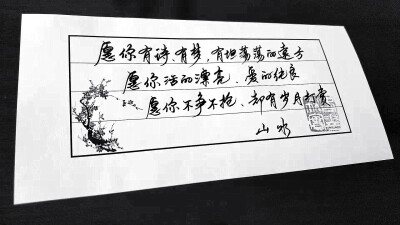 愿你有诗、有梦,有坦荡荡的远方
愿你活的漂亮、爱的优良
愿你不争不抢,却有岁月打赏
山水